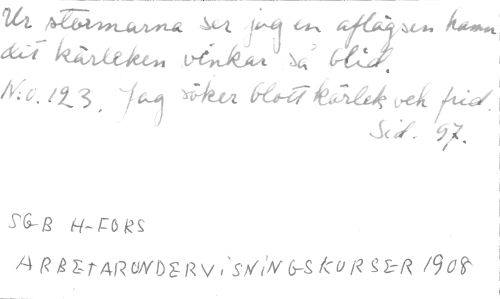 Ur stormarna ser jag en aflägsen hamn,
dit kärleken vinkar så blid.
N:o. 123. Jag söker blott kärlek och frid.
Sid. 97.
SGB H-FORS
ARBETARUNDERVISNINGSKURSER 1908